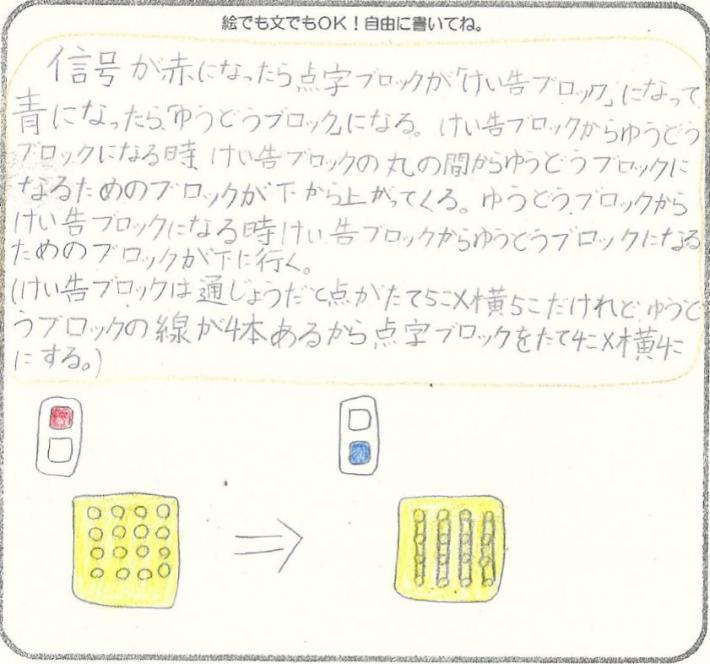 絵でも文でもOK！自由に書いてね。
信号が赤になったら点字ブロックが「けい告ブロック」になって、
青になったら「ゆうどうブロック」になる。けい告ブロックからゆうどう
ブロックになる時けい告ブロックの丸の間からゆうどうブロックに
なるためのブロックが下から上がってくる。ゆうどうブロックから
けい告ブロックになる時けい告ブロックからゆうどうブロックになる
ためのブロックが下に行く。
(けい告ブロックは通じょうだと点がたて5こ×横5こだけれど、ゆうど
うブロックの線が4本あるから点字ブロックをたて4こ×横4こ
にする。)